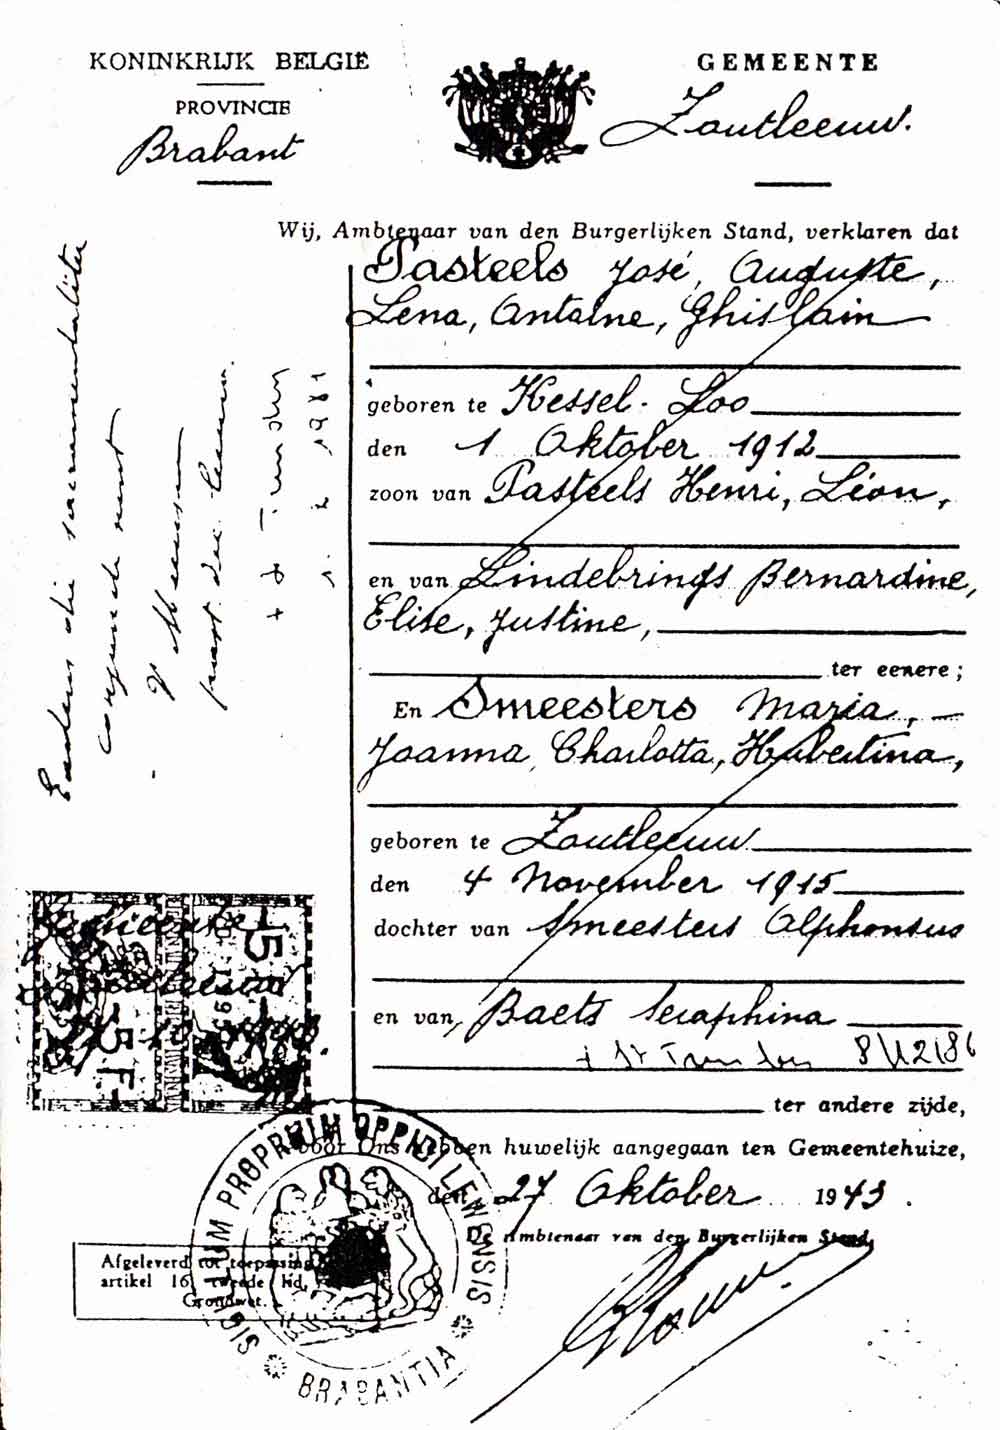 KONINKRIJK BELGIË
PROVINCIE
Brabant
GEMEENTE
Zoutleeuw.
Wij, Ambtenaar van den Burgerlijken Stand, verklaren dat
Pasteels José, Auguste,
Lena, Antoine, Ghislain
geboren te Kessel-Loo
den 1 Oktober 1912
zoon van Pasteels Henri, Léon,
en van Lindebrings Bernardine,
Elise, Justine,
ter eenere;
En Smeesters Maria,
Joanna, Charlotta, Hubertina,
geboren te Zoutleeuw
den 4 November 1915
dochter van Smeesters Alphonsus
en van, Baets Seraphina
+ St Truiden 8/12/86
ter andere zijde,
voor Ons hebben huwelijk aangegaan ten Gemeentehuize,
den 27 Oktober 1943.
De Ambtenaar van den Burgerlijken Stand,
Eadem die sacramentaliter
conjuncti sunt
+ St Truiden
1981
5 F.
5
SIGILLUM PROPRIUM OPPIDI LEWENSIS
BRABANTIA
Afgeleverd tot toepassing
artikel 16, tweede lid,
Grondwet.